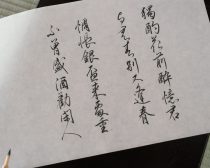 獨酌花前醉憶君
与君春別又逢春
惆悵銀盃來處重
不曾盛酒勸閑人